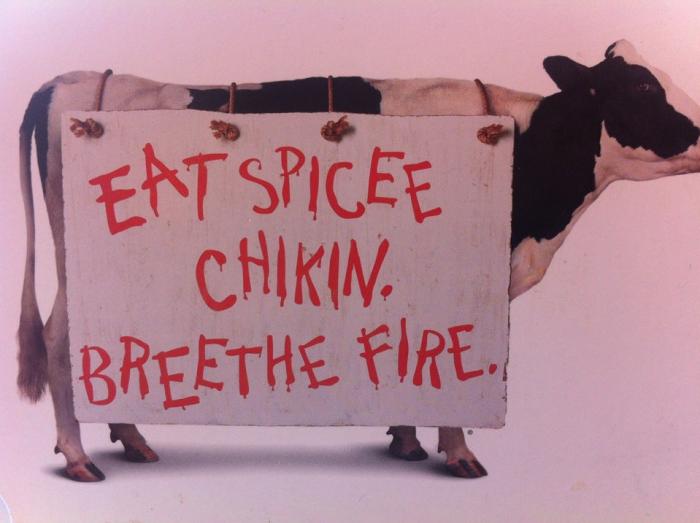 EAT SPICEE
CHIKIN.
BREETHE FIRE.